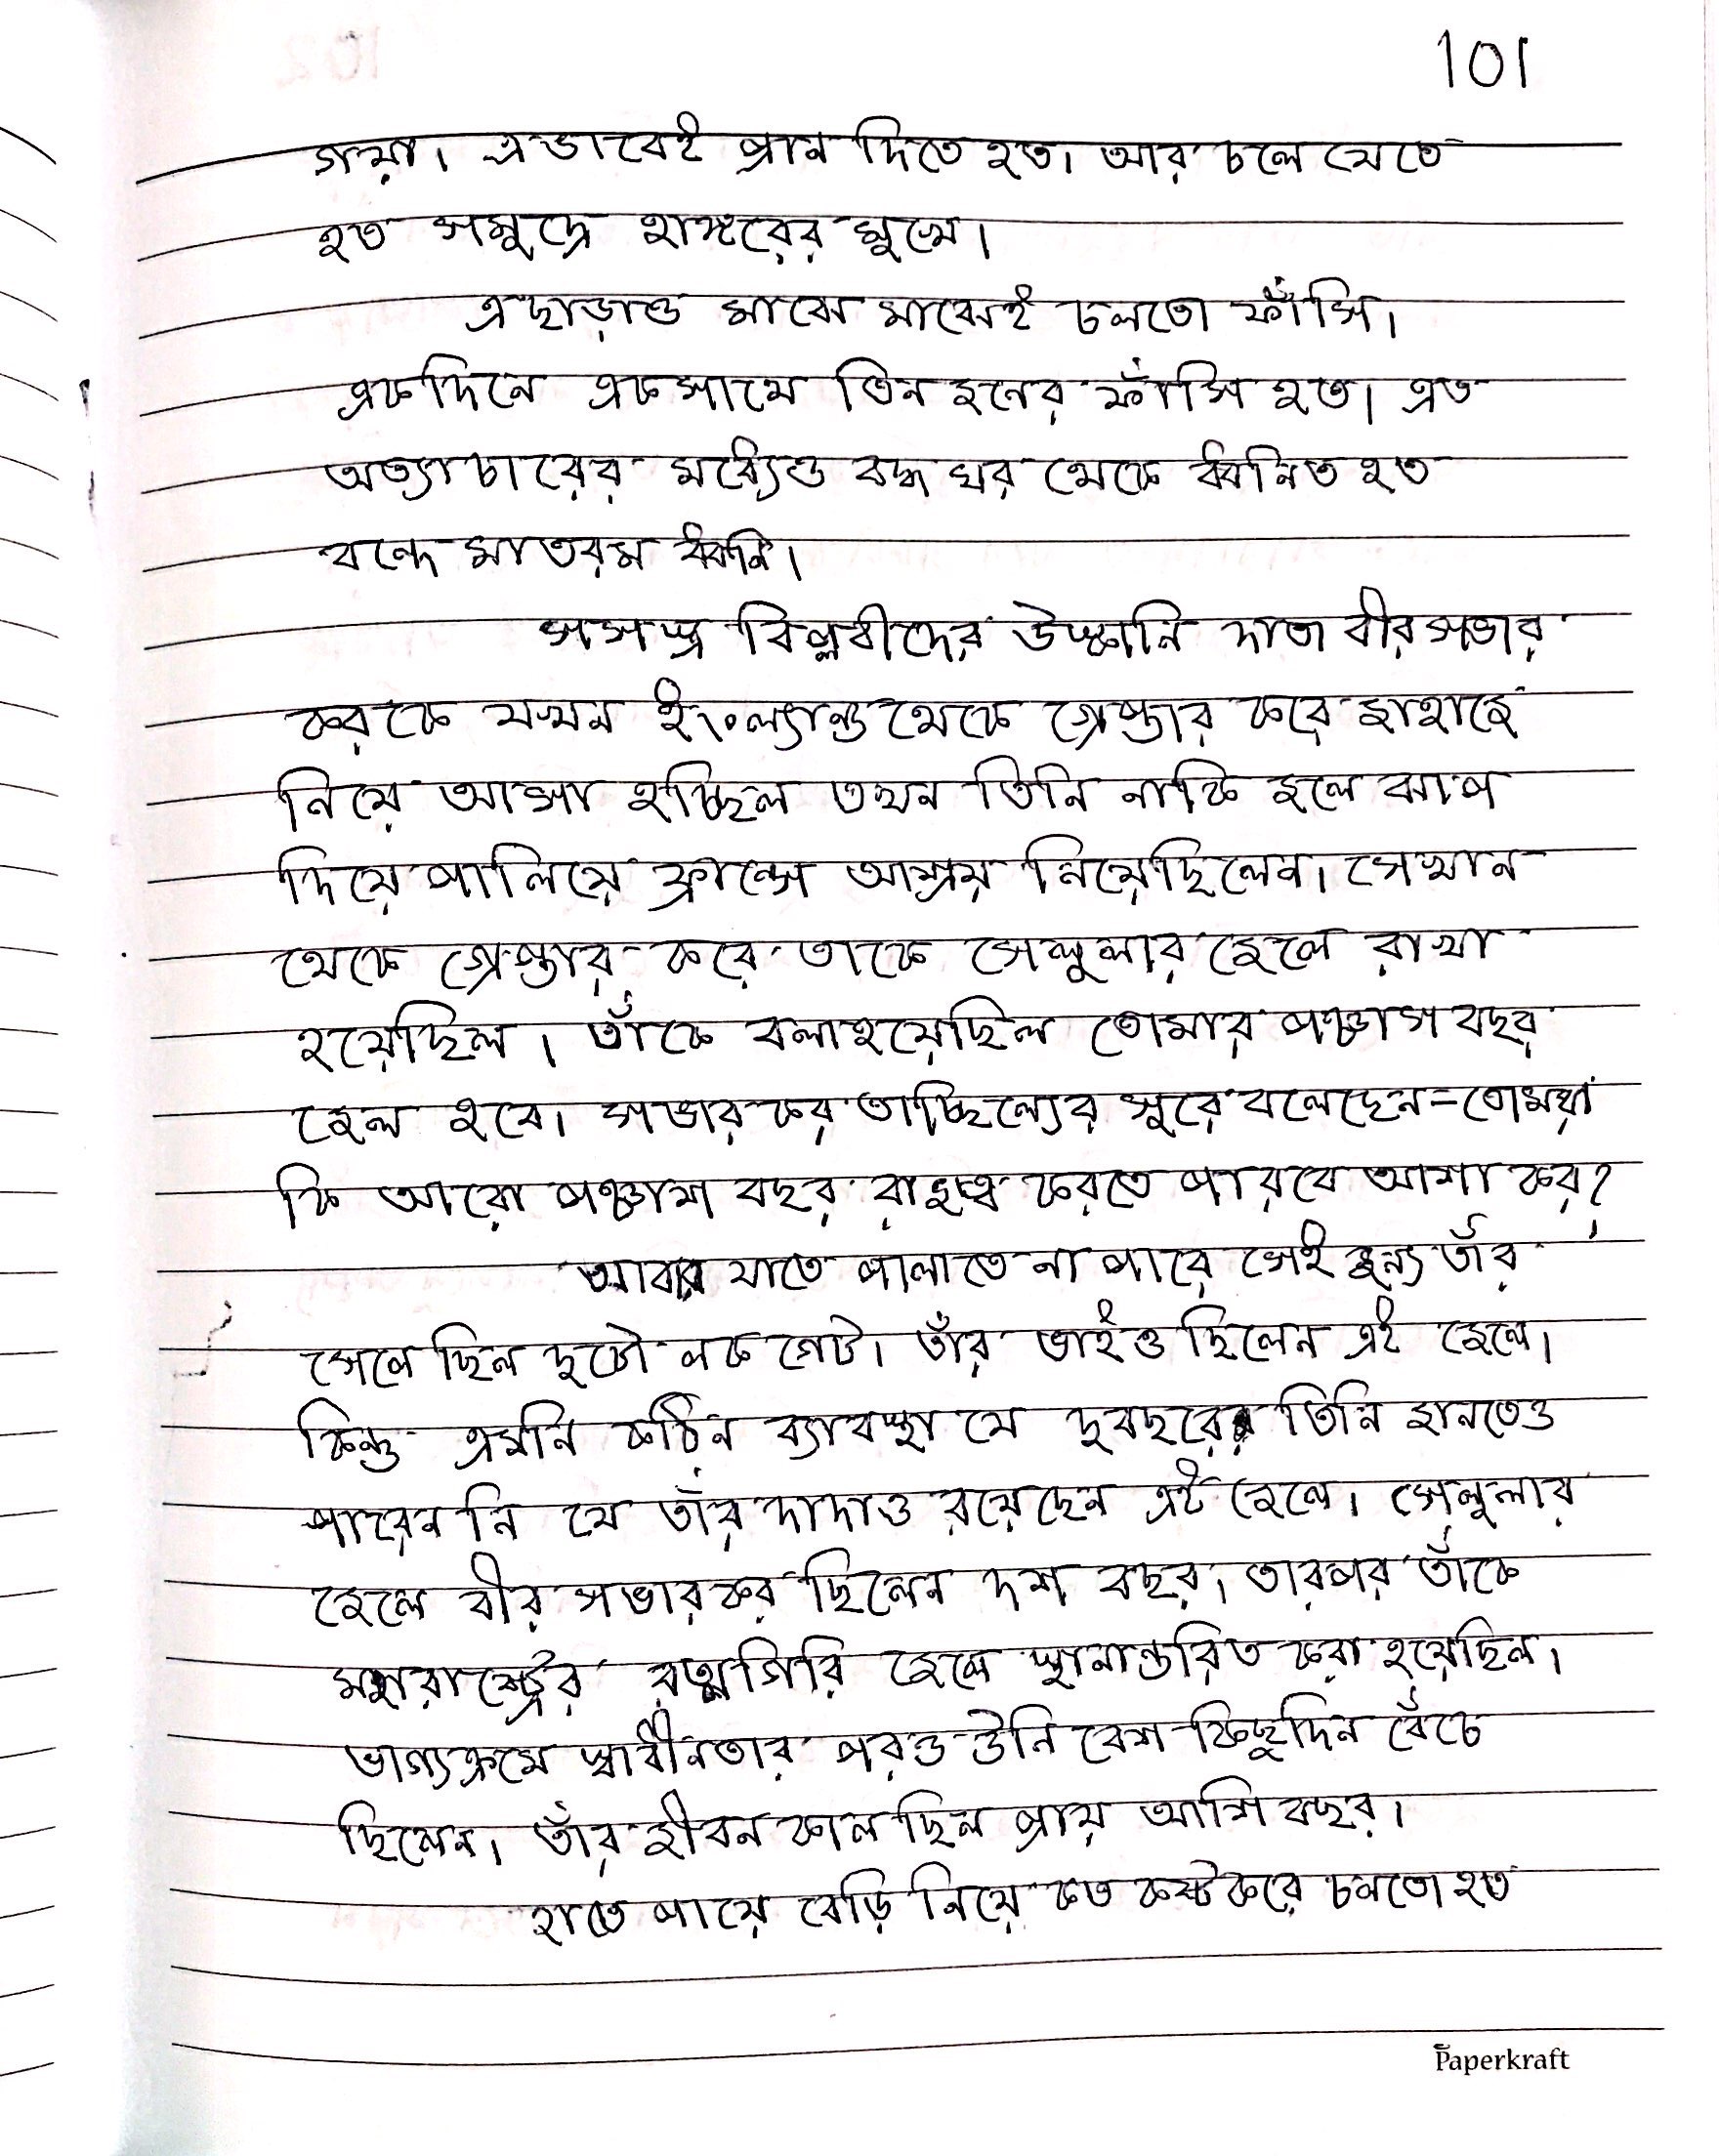 101
গয়া। এভাবেই প্রান দিতে হত। আর চলে যেতে
হত সমুদ্রে হাঙ্গরের মুখে।
এছাড়াও মাঝে মাঝেই চলতো ফাঁসি।
একদিনে একসাথে তিন জনের ফাঁসি হত। এত
অত্যাচারের মধ্যেও বদ্ধ ঘর থেকে ধ্বনিত হত
বন্দে মাতরম ধ্বনি।
সসস্ত্র বিপ্লবীদের উস্কানি দাতা বীর সভার
করকে যখন ইংল্যান্ড থেকে গ্রেপ্তার করে জাহাজে
নিয়ে আসা হচ্ছিল তখন তিনি নাকি জলে ঝাপ
দিয়ে পালিয়ে ফ্রান্সে আশ্রয় নিয়েছিলেন। সেখান
থেকে গ্রেপ্তার করে তাকে সেলুলার জেলে রাখা
হয়েছিল। তাঁকে বলা হয়েছিল তোমার পঞ্চাস বছর
জেল হবে। সভার কর তাচ্ছিল্যের সুরে বলেছেন = তোমরা
কি আরো পঞ্চাশ বছর রাজত্ব করতে পারবে আশা কর?
আবার যাতে পালাতে না পারে সেই জন্য তাঁর
সেলে ছিল দুটো লক গেট। তাঁর ভাইও ছিলেন এই জেলে।
কিন্তু এমনি কঠিন ব্যাবস্থা যে দুবছরে তিনি জানতেও
পারেন নি যে তাঁর দাদাও রয়েছেন এই জেলে। সেলুলার
জেলে বীর সভারকর ছিলেন দশ বছর। তারপর তাঁকে
মহারাস্ট্রের রত্নগিরি জেলে স্থানান্তরিত করা হয়েছিল।
ভাগ্যক্রমে স্বাধীনতার পরও উনি বেশ কিছুদিন বেঁচে
ছিলেন। তাঁর জীবন কাল ছিল প্রায় আশি বছর।
হাতে পায়ে বেড়ি নিয়ে কত কষ্ট করে চলতো হত
Paperkraft